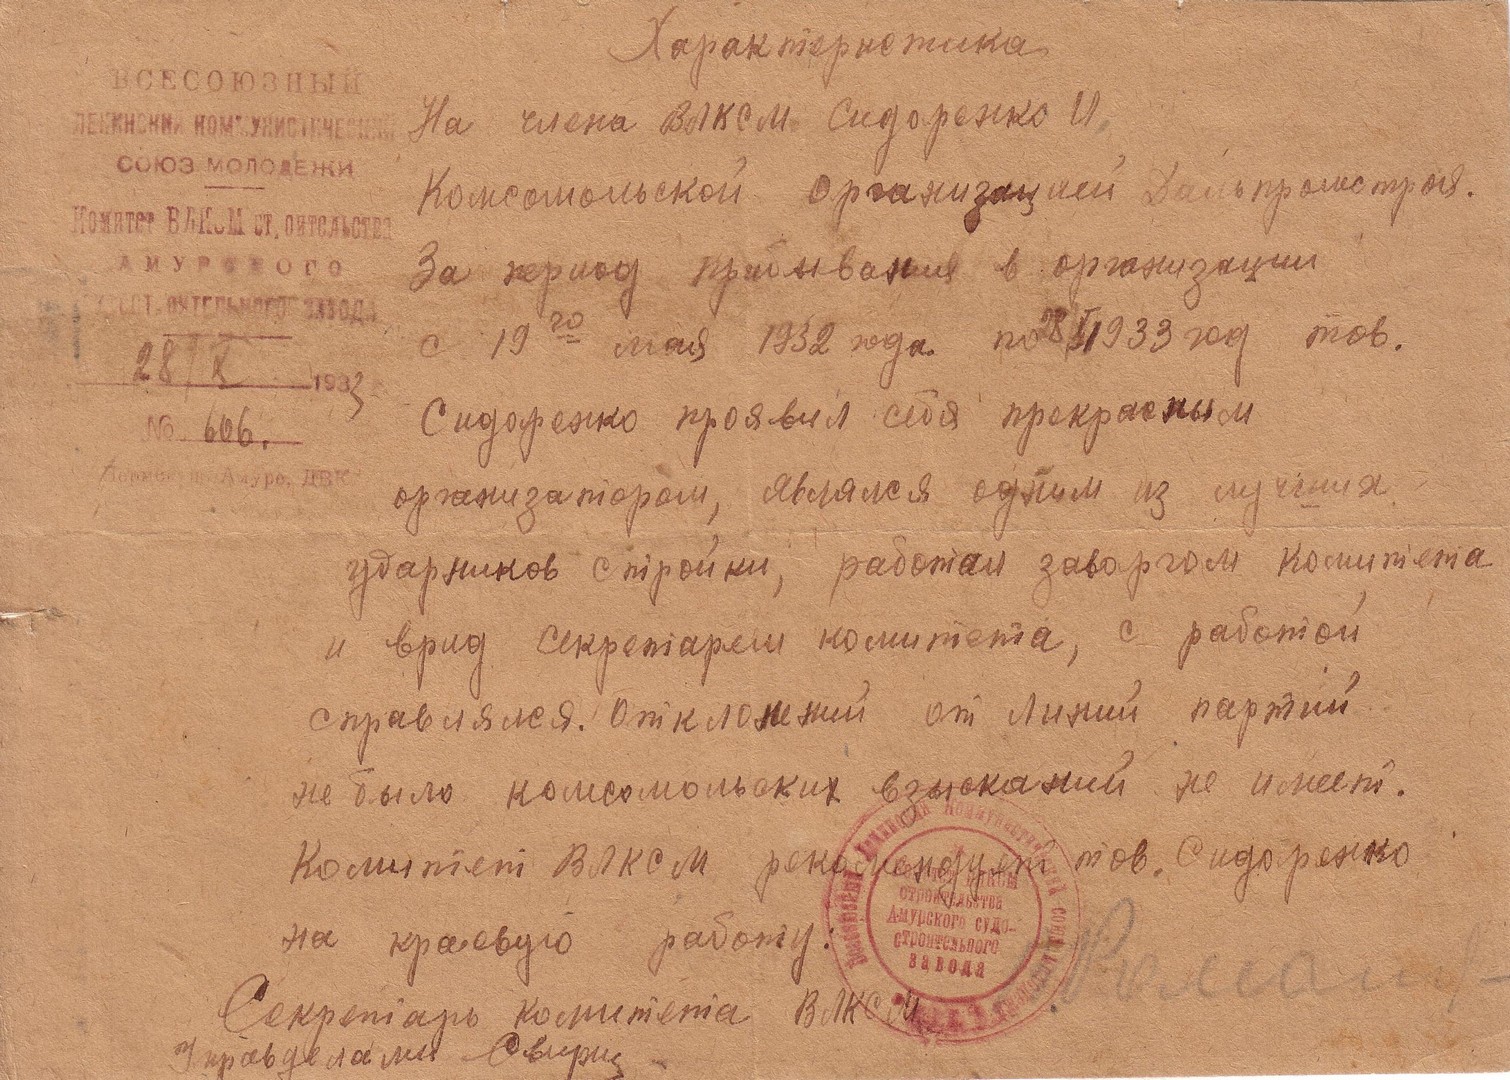 Характеристика
ВСЕСОЮЗНЫЙ
ЛЕНИНСКИЙ КОММУНИСТИЧЕСКИЙ
СОЮЗ МОЛОДЕЖИ
Комитет ВЛКСМ строительства
АМУРСКОГО
ЗАВОДА
28/X 1933
№ 606.
Амуре, ДВК
На члена ВЛКСМ Сидоренко И.
Комсомольской организацией Дальпромстроя.
За период прибывания в организации
с 19го мая 1932 года по 28/X 1933 год тов.
Сидоренко проявил себя прекрасным
организатором, являлся одним из лучших
ударников стройки, работал заворгом комитета
и врид секретарем комитета, с работой
справлялся. Отклонений от линий партий
не было комсомольских взысканий не имеет.
Комитет ВЛКСМ рекомендует тов. Сидоренко
на краевую работу.
Секретарь комитета ВЛКСМ
Управделами
Всесоюзный Ленинский Коммунистический союз
Комитет ВЛКСМ
строительства
Амурского судо-
строительного
завода